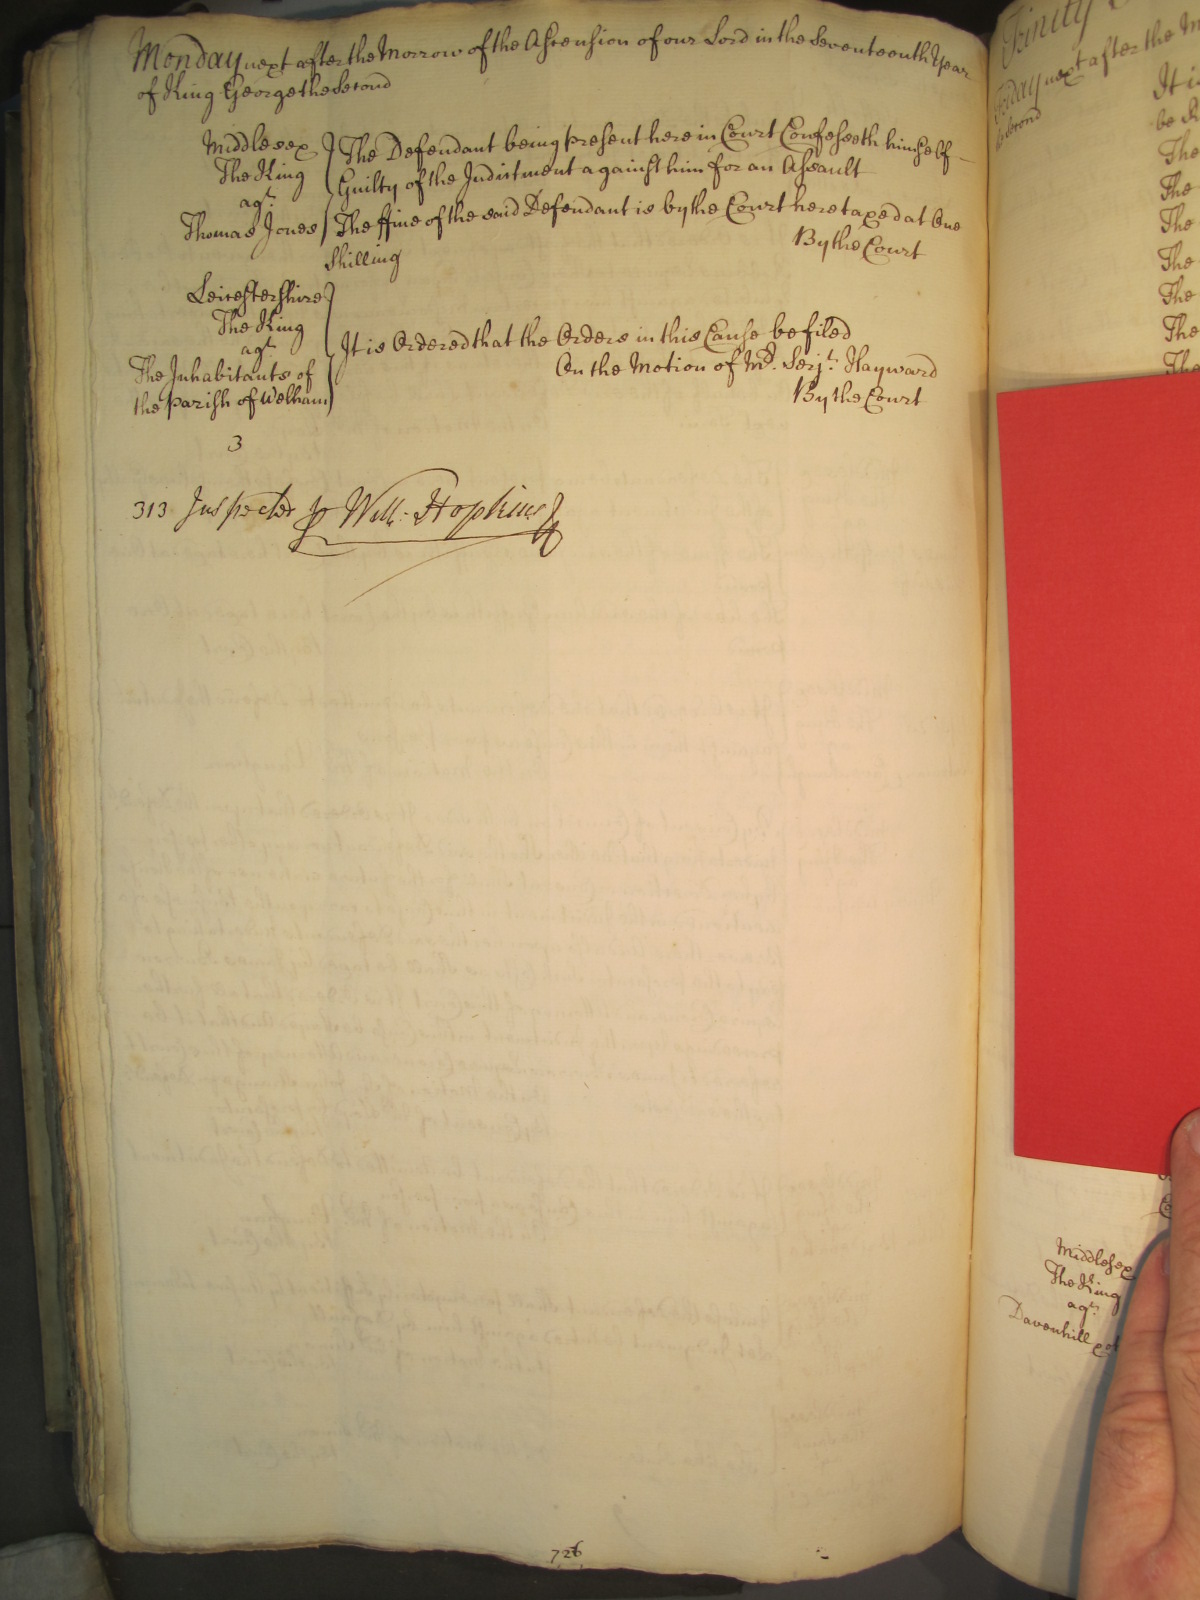 Monday next after the Morrow of the Ascension of our Lord in the Seventeenth Year
of King George the Second
Middlesex
The King
agt.
Thomas Jones
The Defendant being present here in Court Confesseth himself
Guilty of the Indictment against him for an Assault
The ffine of the said Defendant is by the Court here taxed at One
Shilling
By the Court
Leicestershire
The King
agt.
The Inhabitants of
the Parish of Welham
It is Ordered that the Orders in this Cause be filed
On the Motion of Mr. Serjt. Hayward
By the Court
3
313 Inspected p Will: Hopkins
726
Trinity
Friday next after the M
Second
It is
be
The
The
The
The
The
The
The
Middlesex
The King
agt.
Davenhill